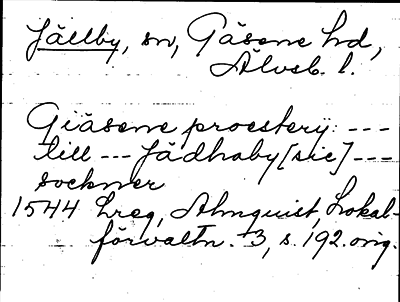 Jällby, sn, Gäsene hd,
Älvsb. l.
Giäsene proestery: ---
till --- Jädhaby [sic] ---
sockner
1544 Lreg, Almquist, Lokal-
förvaltn. 3, s. 192. orig.